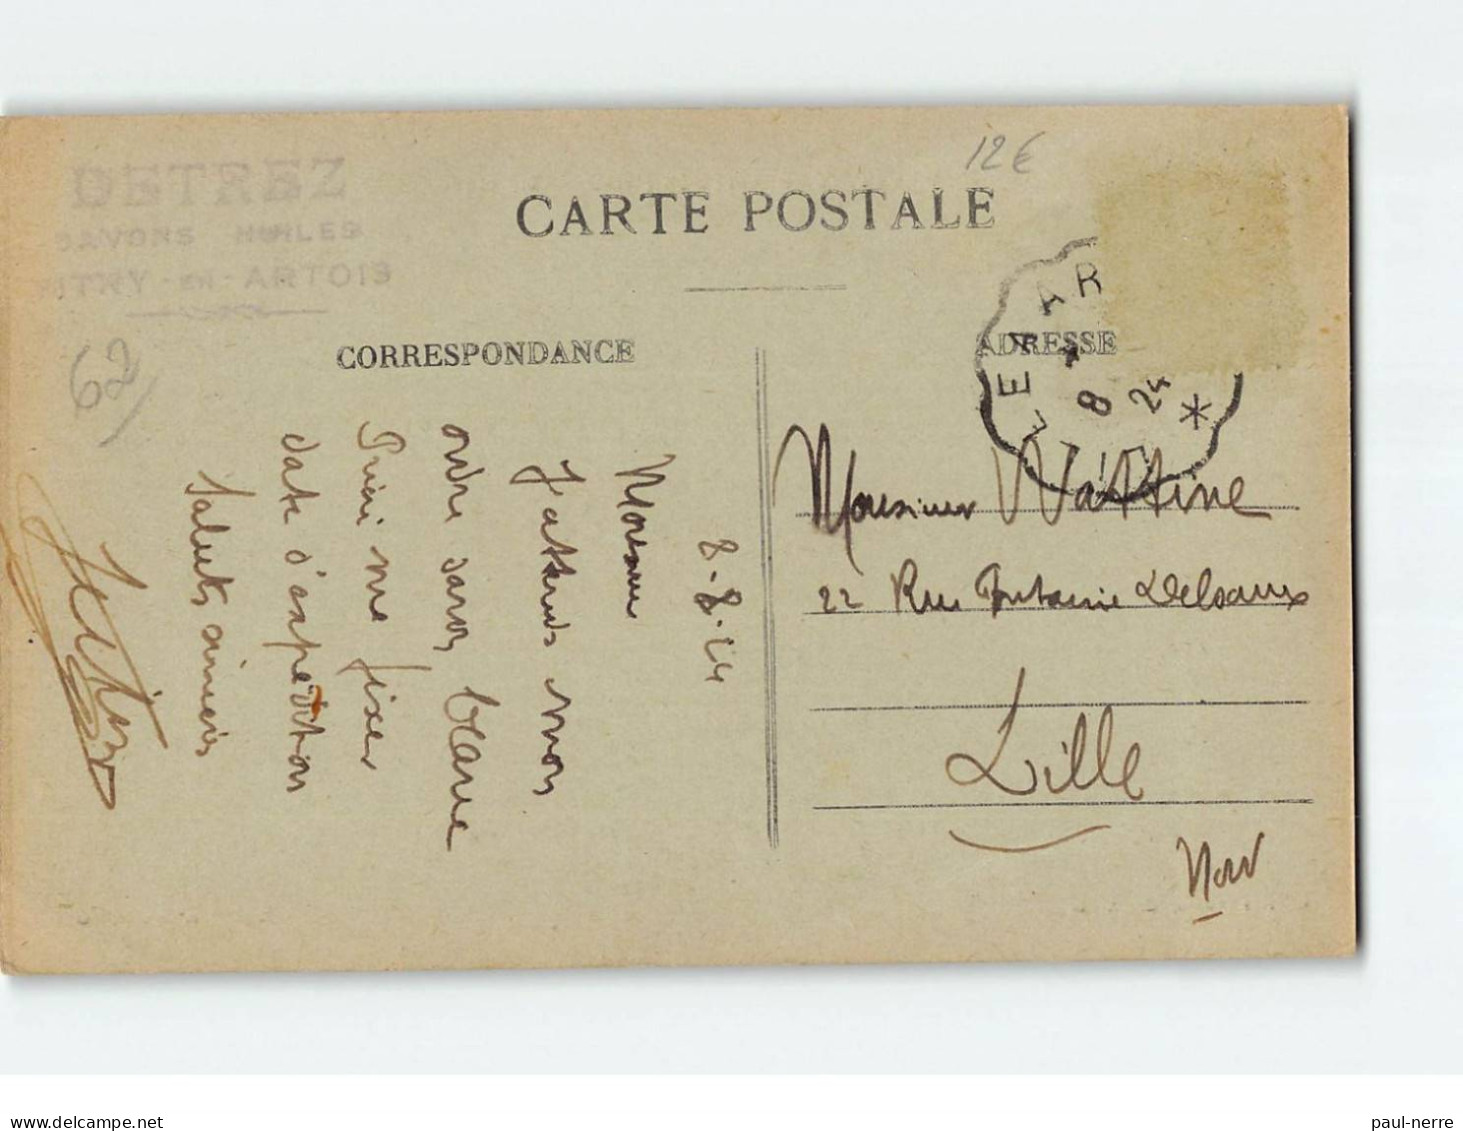 DETREZ
SAVONS HUILES
VITRY-EN-ARTOIS
12€
CARTE POSTALE
62
CORRESPONDANCE
ADRESSE
LILLE A AR
8 24
8-8-24
Monsieur
J'attends mon
ordre savon blanc
Prière me fixer
date d'expédition
Saluts sincères
Monsieur Wattine
22 Rue Fontaine Delsaux
Lille
Nord
delcampe.net
paul-nerre